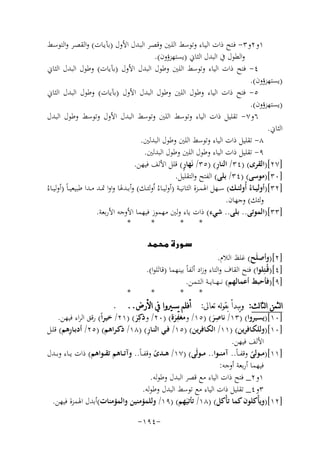 ١و٢و٣- فتح ذات الياء وتوسط اللين وقصر البدل الأول (بآيات) والقصر والتوسط
والطول في البدل الثاني (يستهزؤون).
٤- فتح ذات الياء وتوسط اللين وطول البدل الأول (بآيات) وطول البدل الثاني
(يستهزؤون).
٥- فتح ذات الياء وطول اللين وطول البدل الأول (بآيات) وطول البدل الثاني
(يستهزؤون).
٦و٧- تقليل ذات الياء وتوسط اللين وتوسط البدل الأول وتوسط وطول البدل
الثاني.
٨- تقليل ذات الياء وتوسط اللين وطول البدلين.
٩- تقليل ذات الياء وطول اللين وطول البدلين.
[٢٧](القرى) (٣٤/ النار) (٣٥/ نهار) قلل الألف فيهن.
[٣٠](موسى) (٣٤/ بلى) الفتح والتقليل.
[٣٢](أولياءُ أولئك) سهل الهمزة الثانية (أولياءُ أولئك) وأبدلها واوا تمد مدا طبيعياً (أولياءُ
ولئك) وجهان.
[٣٣](الموتى.. بلى.. شيء) ذات ياء ولين مهموز فيهما الأوجه الأربعة.
* * * *
سورة محمد
[٢](وأصلح) غلظ اللام.
[٤](قُتِلوا) فتح القاف والتاء وزاد ألفاً بينهما (قاتلوا).
[٩](فأحبط أعمالهم) نهاية الثمن.
* * * *
الثمن الثالث: ويبدأ بقوله تعالى: أفلم يسيروا في الأرض.. .
[١٠](يسيروا) (١٣/ ناصِرَ) (١٥/ ومغفِرَة) (٢٠/ وذُكِرَ) (٢١/ خيراً) رقق الراء فيهن.
[١٠](وللكافرين) (١١/ الكافرين) (١٥/ في النار) (١٨/ ذكراهم) (٢٥/ أدبارهم) قلل
الألف فيهن.
[١١](مولىَ وقفاً.. آمنوا.. مولَى) (١٧/ هدىً وقفاً.. وآتاهم تقواهم) ذات ياء وبدل
فيهما أربعة أوجه:
١و٢_ فتح ذات الياء مع قصر البدل وطوله.
٣و٤_ تقليل ذات الياء مع توسط البدل وطوله.
[١٢](ويأكلون كما تأكل) (١٨/ تأتيهم) (١٩/ وللمؤمنين والمؤمنات)أبدل الهمزة فيهن.
-١٩٤-